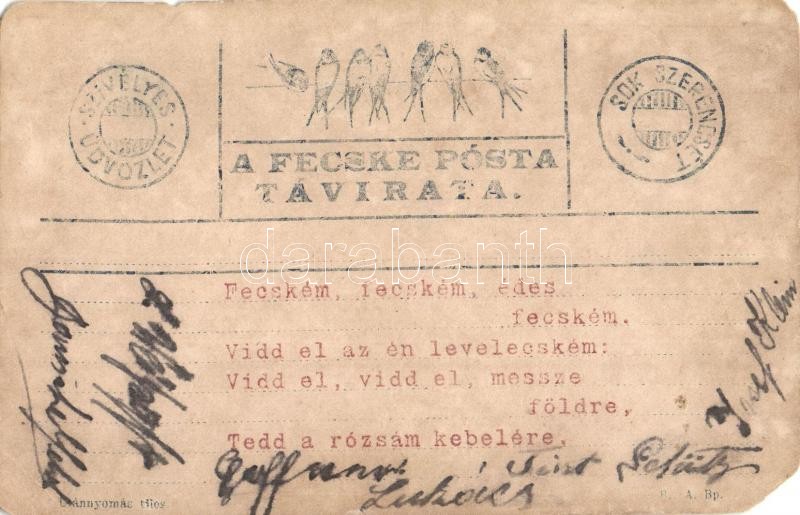 SZIVÉLYES ÜDVÖZLET
SOK SZERENCSÉT
A FECSKE PÓSTA
TÁVIRATA.
darabanth
Fecském, fecském, édes
fecském.
Vidd el az én levelecském:
Vidd el, vidd el, messze
földre,
Tedd a rózsám kebelére.
Josef Klein
Lukács
Utánnyomás tilos
A. Bp.